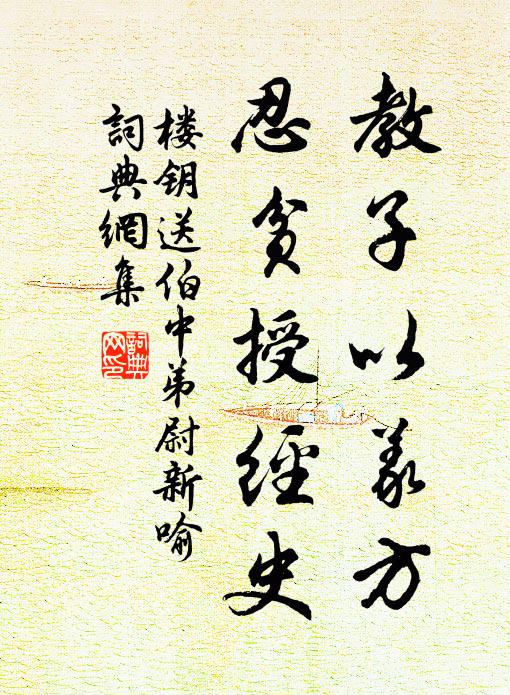 教子以义方
忍貧授經史
楼钥送伯中弟尉新喻
詞典網集
詞典
网印